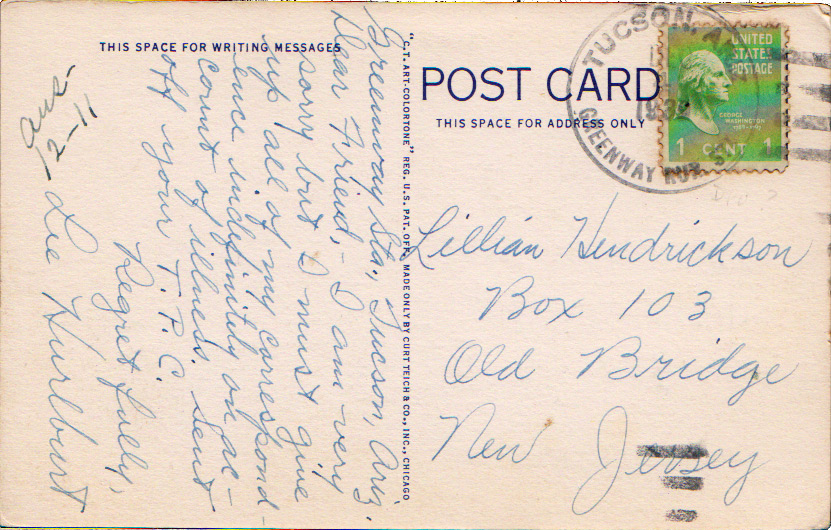 THIS SPACE FOR WRITING MESSAGES
Greenway Sta., Tucson, Ariz.
Dear Friend,- I am very
sorry but I must give
up all of my correspond-
ence indefinitely on ac-
count of illness. Sent
off your T.P.C.
Regretfully,
Lee Hurlburt
ans-
12-11
"C.T. ART-COLORTONE" REG. U.S. PAT. OFF. MADE ONLY BY CURT TEICH & CO., INC., CHICAGO
POST CARD
THIS SPACE FOR ADDRESS ONLY
TUCSON, A
GREENWAY RUR. S
UNITED
STATES
POSTAGE
GEORGE
WASHINGTON
1 CENT 1
Lillian Hendrickson
Box 103
Old Bridge
New Jersey